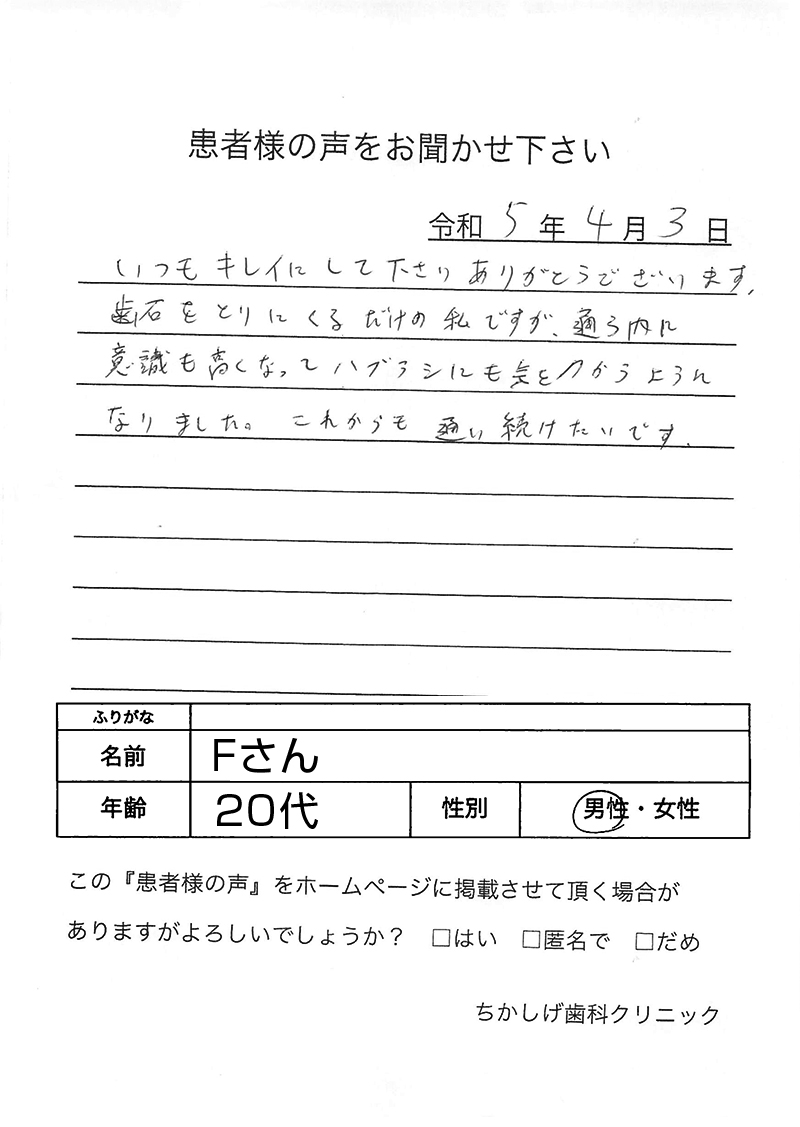 患者様の声をお聞かせ下さい
令和 5 年 4 月 3 日
いつもキレイにして下さりありがとうございます。
歯石をとりにくるだけの私ですが、通う内に
意識も高くなってハブラシにも気をつかうように
なりました。これからも通い続けたいです。
ふりがな
名前 Fさん
年齢 20代 性別 男性・女性
この『患者様の声』をホームページに掲載させて頂く場合が
ありますがよろしいでしょうか？ □はい □匿名で □だめ
ちかしげ歯科クリニック